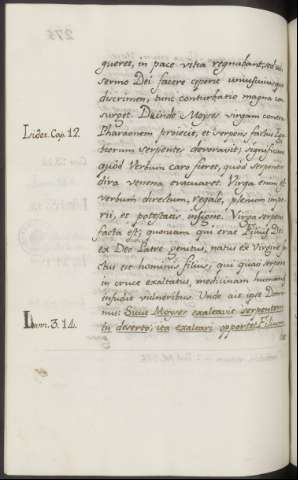 gueret, in pace vitia regnabant: sed ubi
sermo Dei facere cœperit uniuscuiusque
discrimen, tunc conturbatio magna con
surget. Deinde Moyses virgam contra
Lib. et. Cap. 12.
Pharaonem proiecit, et serpens factus Egip
tiorum serpentes devoravit, significans
quòd Verbum caro fieret, quod serpentis
dira venena evacuaret. Virga enim est
verbum directum, regale, plenum impe
rii, et potestatis insigne. Virga serpens
facta est; quoniam qui erat Filius Dei
ex Deo Patre genitus, natus ex Virgine fa
ctus est hominis filius, qui quasi serpens
in cruce exaltatus, medicinam humanis
infudit vulneribus. Unde ait ipse Domi
Joan. 3. 14.
nus: Sicut Moyses exaltavit serpentem
in deserto, ita exaltari opportet Filium